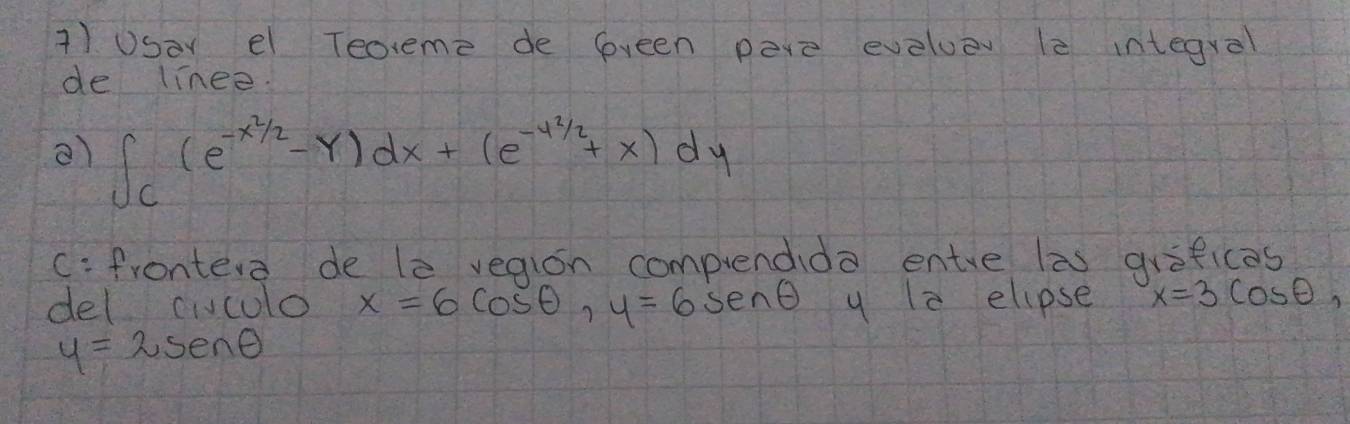 7) Usar el Teorema de Green para evaluar la integral
de línea.
a) ∫_C (e^{-x²/2} - Y) dx + (e^{-y²/2} + x) dy
C: frontera de la región comprendida entre las gráficas
del círculo x = 6 cosθ, y = 6 senθ y la elipse x = 3 cosθ,
y = 2 senθ